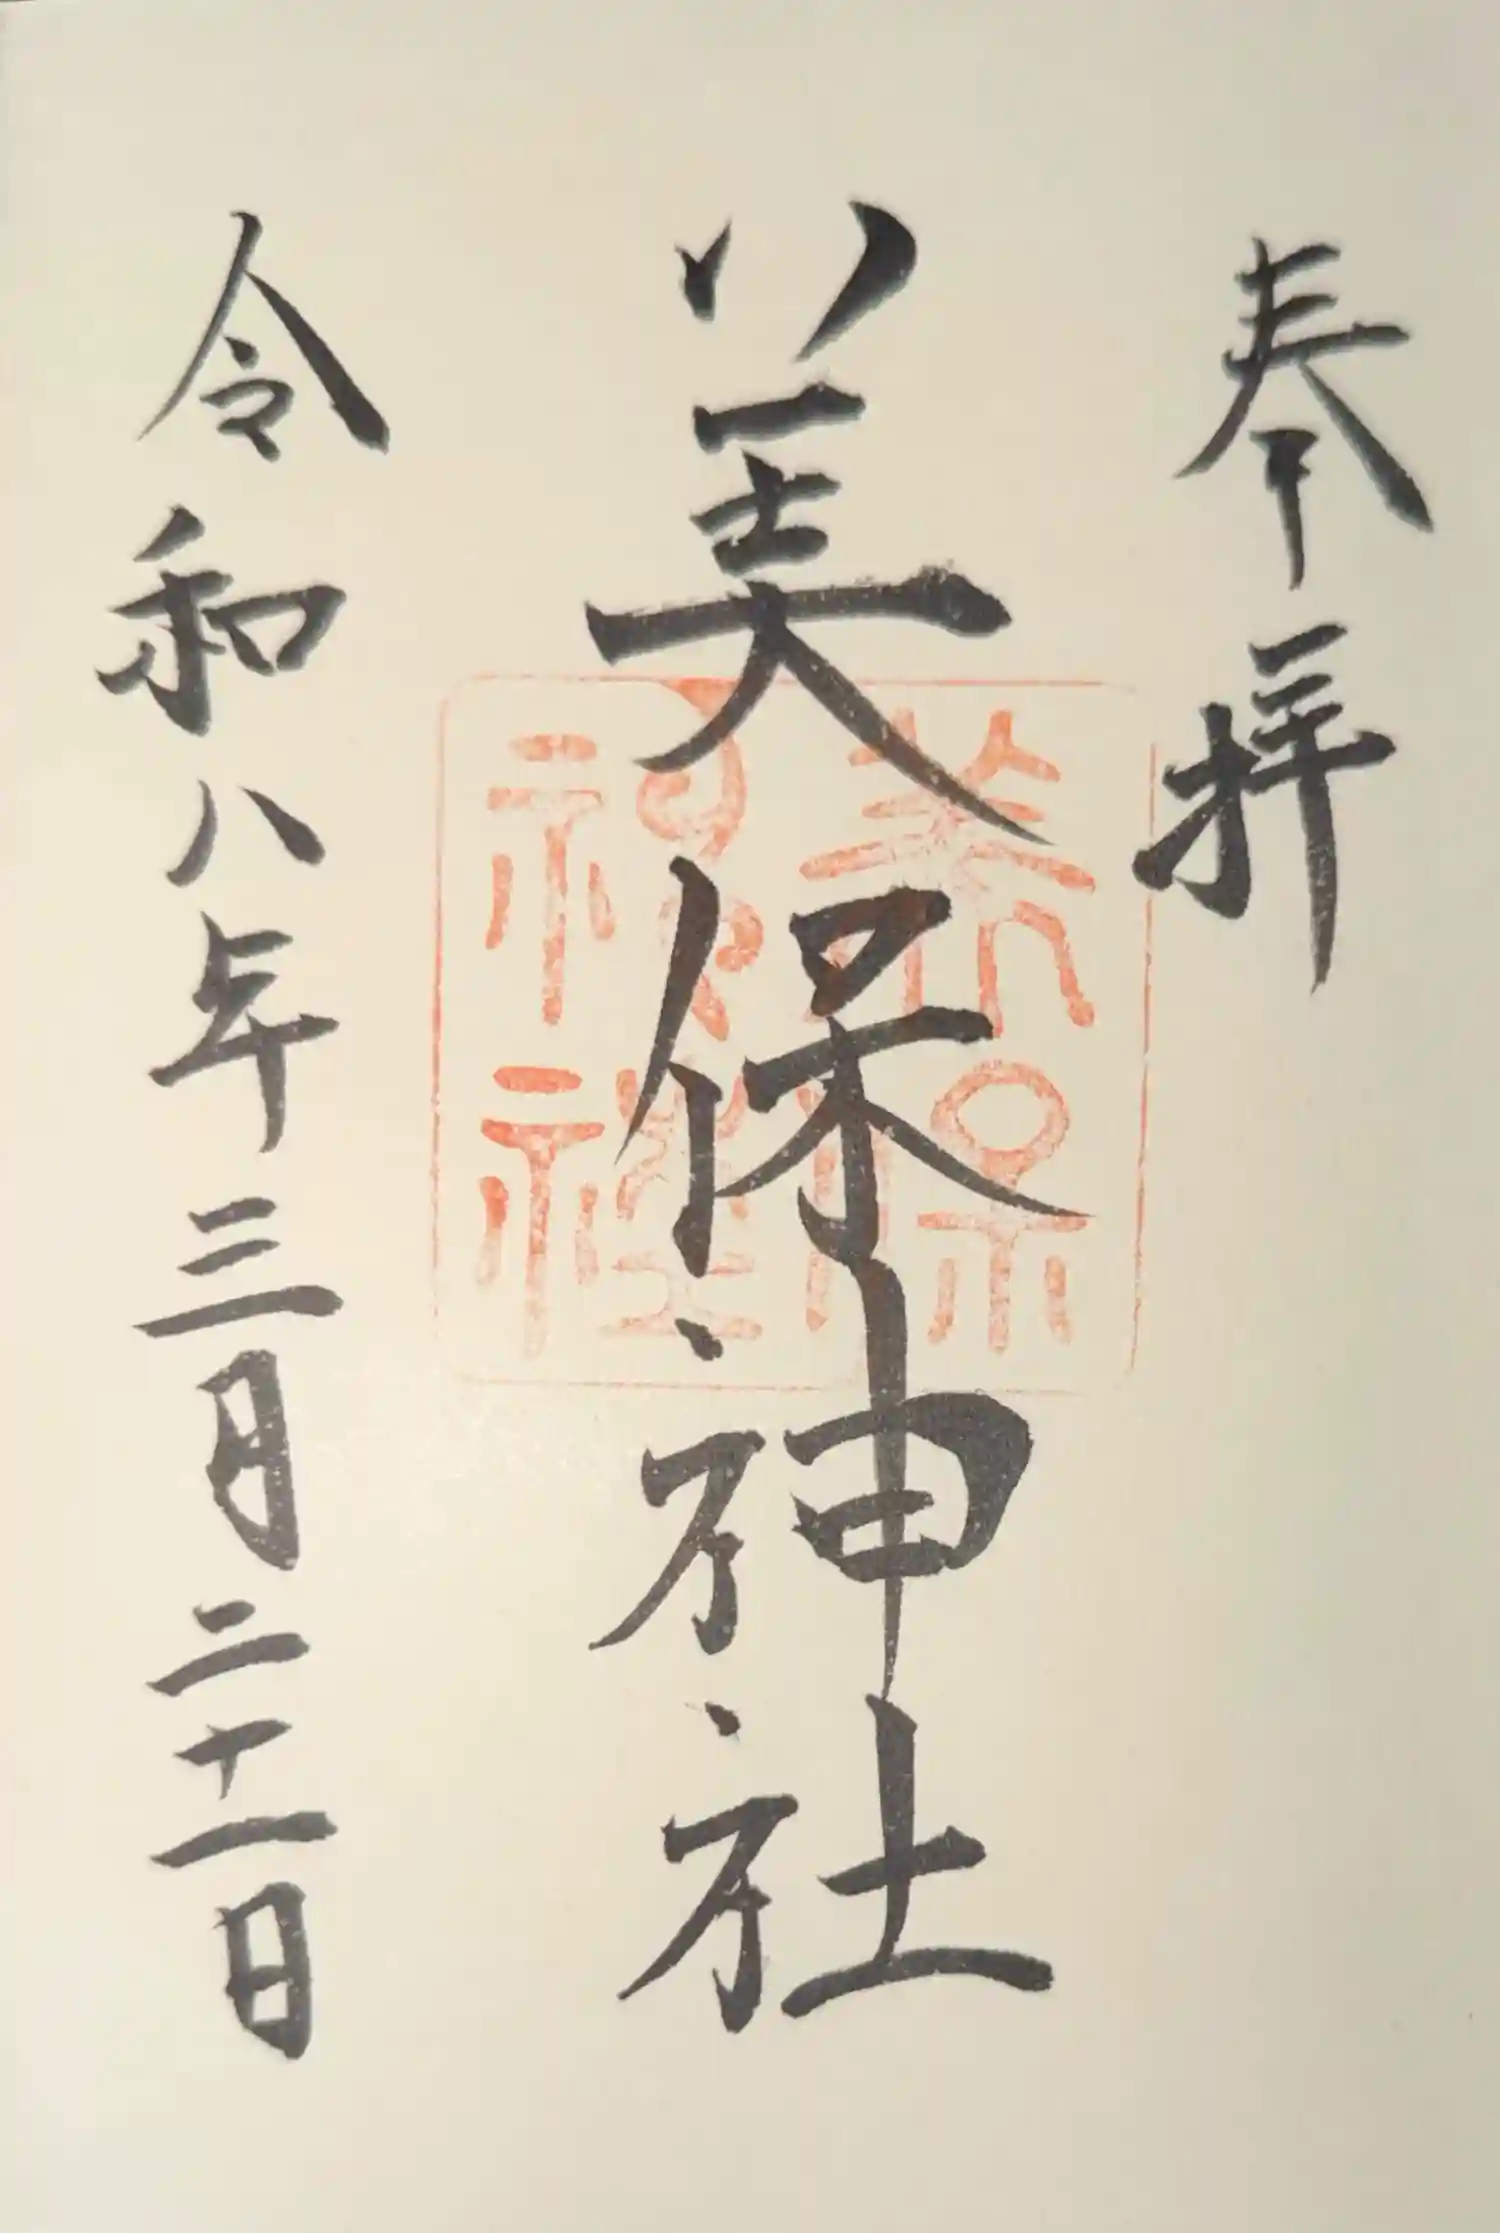 奉拝
美保神社
美保神社
令和八年三月二十一日